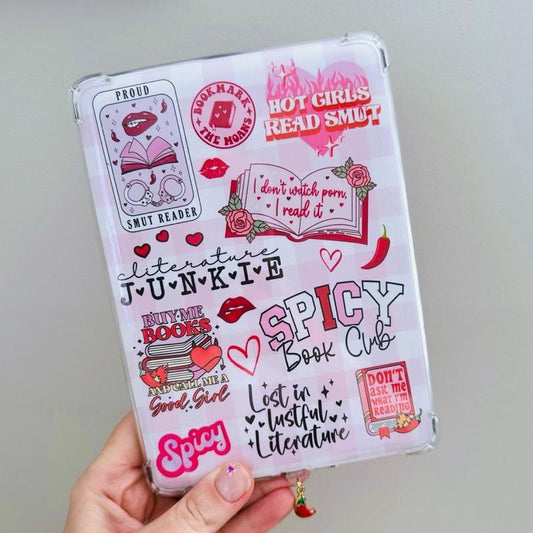 PROUD
SMUT READER
BOOKMARK
THE MOANS
HOT GIRLS
READ SMUT
I don't watch porn,
I read it
cliterature
J·U·N·K·I·E
BUY ME
BOOKS
AND CALL ME A
Good Girl
SPICY
Book Club
DON'T
ASK ME
WHAT I'M
READING
Lost in
lustful
Literature
Spicy